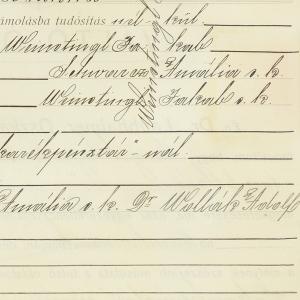 ámolásba tudósítás nél- kül.
Weinstingl Ja- kab
Schwarcz Amália s. k.
Weinstingl Jakab s. k.
karékpénztár"-nál.
Amália s. k. Dr. Wollák Adolf